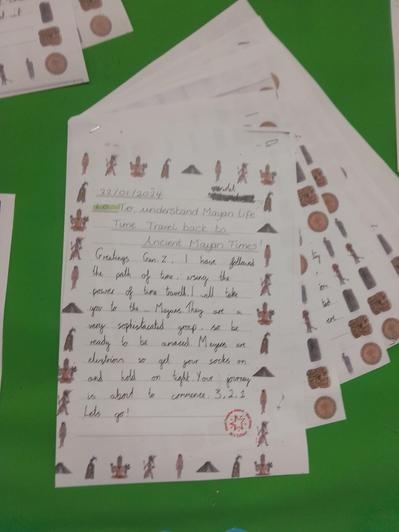 22/01/2024
L.O. To understand Mayan Life
Time Travel back to
Ancient Mayan Times!
Greetings Gen Z. I have followed
the path of time, using the
power of time travell. I will take
you to the .. Mayans. They are a
very sophisticated group. so be
ready to be amazed Mayans are
so get your socks on
and hold on tight. Your journey
is about to commence. 3, 2, 1
Lets go!